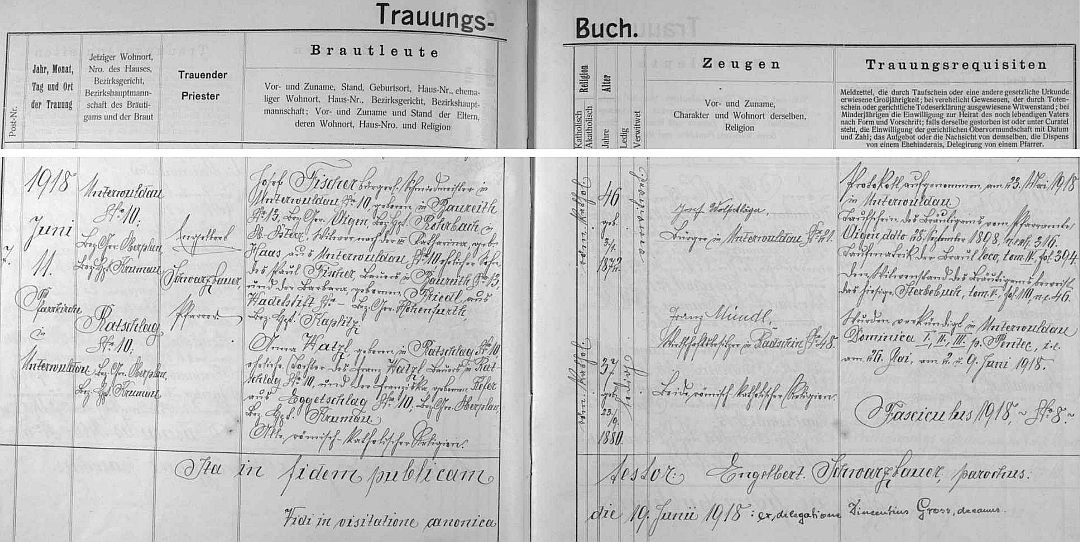 Trauungs-
Buch.
Post-Nr.
Jahr, Monat,
Tag und Ort
der Trauung
Jetziger Wohnort,
Nro. des Hauses,
Bezirksgericht,
Bezirkshauptmann-
schaft des Bräuti-
gams und der Braut
Trauender
Priester
Brautleute
Vor- und Zuname, Stand, Geburtsort, Haus-Nr., ehema-
liger Wohnort, Haus-Nr., Bezirksgericht, Bezirkshaupt-
mannschaft; Vor- und Zuname und Stand der Eltern,
deren Wohnort, Haus-Nro. und Religion
Religion
Katholisch
Akatholisch
Alter
Jahre
Ledig
Verwitwet
Zeugen
Vor- und Zuname,
Charakter und Wohnort derselben,
Religion
Trauungsrequisiten
Meldzettel, die durch Taufschein oder eine andere gesetzliche Urkunde
erwiesene Großjährigkeit; bei verehelicht Gewesenen, der durch Toten-
schein oder gerichtliche Todeserklärung ausgewiesene Witwenstand; bei
Minderjährigen die Einwilligung zur Heirat des noch lebenden Vaters
nach Form und Vorschrift; falls derselbe gestorben ist oder unter Curatel
steht, die Einwilligung der gerichtlichen Obervormundschaft mit Datum
und Zahl; das Aufgebot oder die Nachsicht von demselben, die Dispens
von einem Ehehindernis, Delegirung von einem Pfarrer.
7.
1918
Juni
11.
Pfarrkirche
in
Unterwuldau
Unterwuldau
No 10.
Bez. Ger. Oberplan,
Bez. Hpt. Krumau
Ratschlag
No 10.
Bez. Ger. Oberplan,
Bez. Hpt. Krumau
Engelbert
Schwarzbauer
Pfarrer
Josef Fischer, Schmiedmeister in
Unterwuldau No 10, geboren in Baureith
No 13, Bez. Ger. Aigen, Bez. Hpt. Rohrbach in
Witwer nach der Katharina, geb.
Haas aus Unterwuldau No 10, ehelicher Sohn
des Paul Fischer, Bauers in Baureith No 13,
und der Barbara geborenen Friedl aus
Wadetstift No – Bez. Ger. Hohenfurth
Bez. Hpt. Kaplitz
Anna Watzl, geboren in Ratschlag No 10
eheliche Tochter des Franz Watzl, Bauers in Rat-
schlag No 10, und der Franziska, geborenen
aus Eggetschlag No 10, Bez. Ger. Oberplan,
Bez. Hpt. Krumau
Alle römisch-katholischer Religion.
röm. kathol.
46
geb.
3/4
1872
verwitwet
röm. kathol.
37
geb.
23/9.
1880.
ledig
Josef
Bürger in Unterwuldau No 21.
Franz Mündl,
Wirtschaftsbesitzer in Radschin No 48.
Beide römisch-katholischer Religion.
Protokoll aufgenommen am 23. Mai 1918
in Unterwuldau
Taufschein des Bräutigams vom Pfarramte
Aigen, ddto 28. September 1898 n. exh. 316.
Taufmatrik der Braut loco, tom. IV. fol. 394.
Den Witwenstand des Bräutigams beweist
das hiesige Sterbebuch, tom. V. fol. 111, n. c. 46.
Wurden verkündigt in Unterwuldau
Dominica I, II, III p. Pentec., i. e.
am 26. Mai, am 2. u. 9. Juni 1918.
Fasciculus 1918, ~ No 8. ~
Ita in fidem publicam
testor: Engelbert Schwarzbauer, parochus:
Vidi in visitatione canonica
die 19. Junii 1918: ex delegatione Vincentius Gross, decanus.